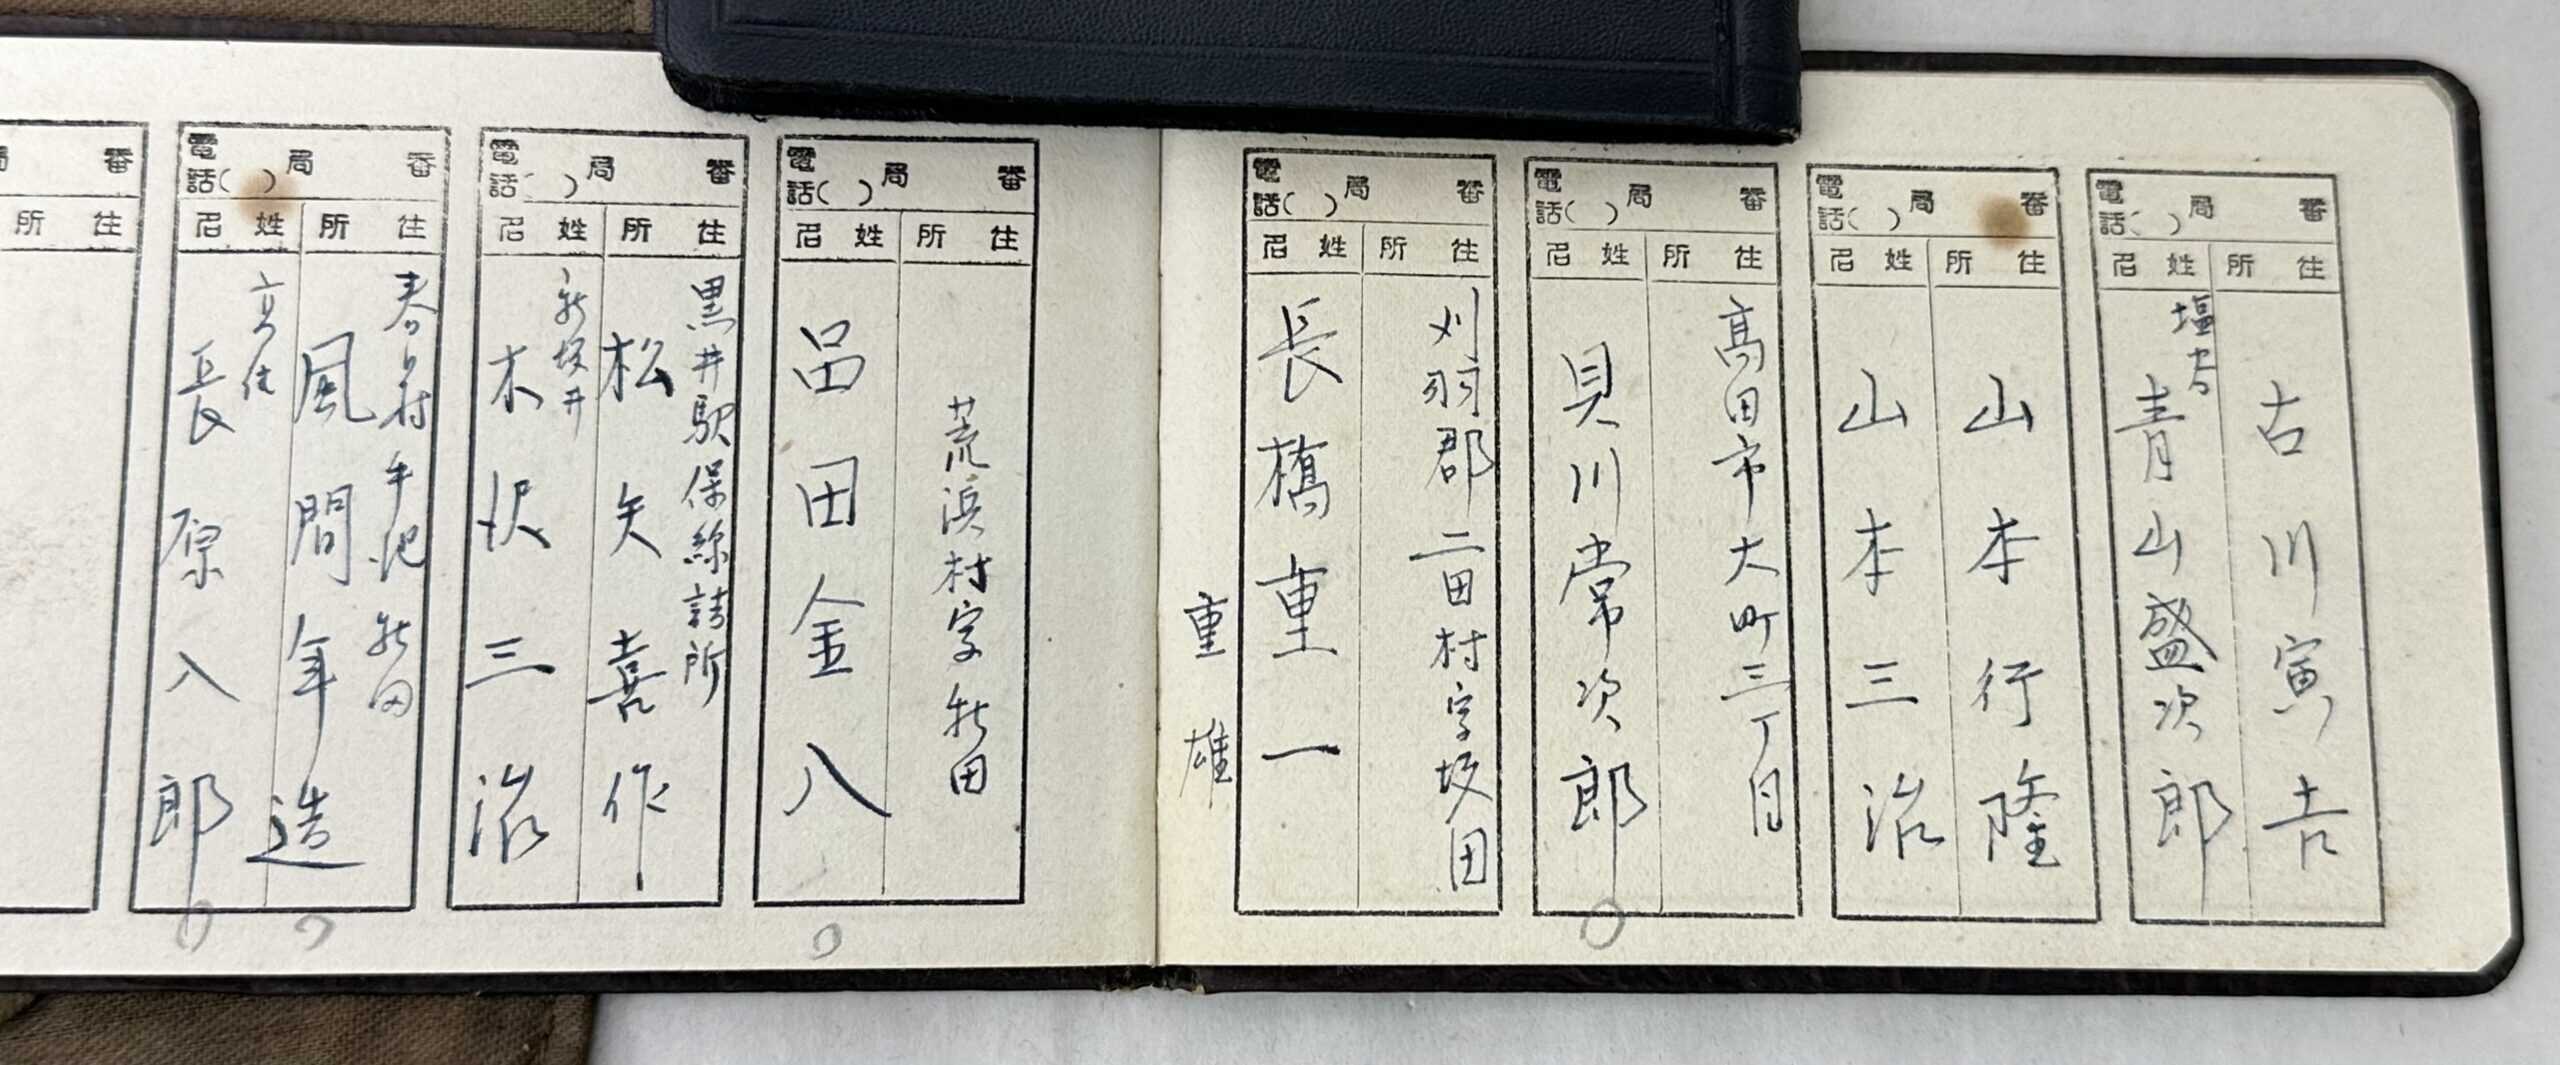 電話( )局 番
住所 姓名
古川寅吉
青山盛次郎
電話( )局 番
住所 姓名
山本行隆
山本三治
電話( )局 番
住所 姓名
高田市大町三丁目
貝川常次郎
電話( )局 番
住所 姓名
刈羽郡二田村字坂田
長橋重一
重雄
電話( )局 番
住所 姓名
荒浜村字新田
呂田金八
電話( )局 番
住所 姓名
黒井駅保線詰所
松矢喜作
新坂井
木沢三治
電話( )局 番
住所 姓名
春日村 新田
風間年造
長原八郎
局 番
住所